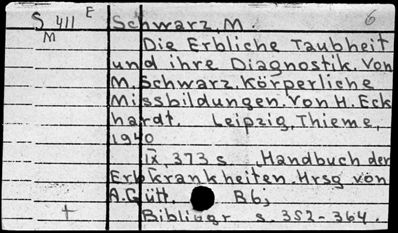 S 411 E Schwarz, M. 6
M Die Erbliche Taubheit
und ihre Diagnostik. Von
M. Schwarz. Körperliche
Missbildungen. Von H. Eck
hardt. Leipzig, Thieme,
1940
IX, 373 s. Handbuch der
Erbkrankheiten. Hrsg von
A. Gütt. Bb;
Bibliogr s. 352-364.